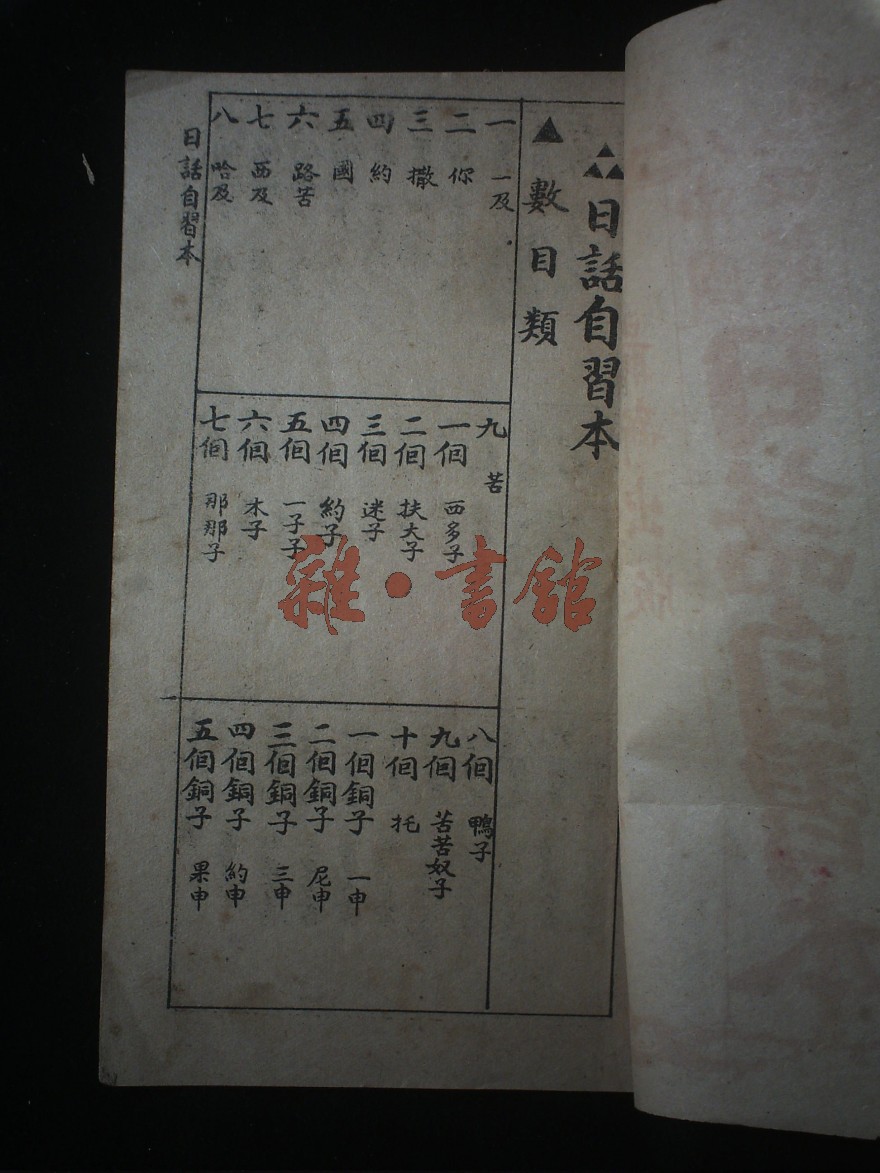 日話自習本
數目類
一 一及
二 你
三 撒
四 約
五 國
六 路苦
七 西及
八 哈及
九 苦
一個 西多子
二個 扶大子
三個 迷子
四個 約子
五個 一子子
六個 木子
七個 那那子
八個 鴨子
九個 苦苦奴子
十個 托
一個銅子 一申
二個銅子 尼申
三個銅子 三申
四個銅子 約申
五個銅子 果申
日話自習本
雜·書館